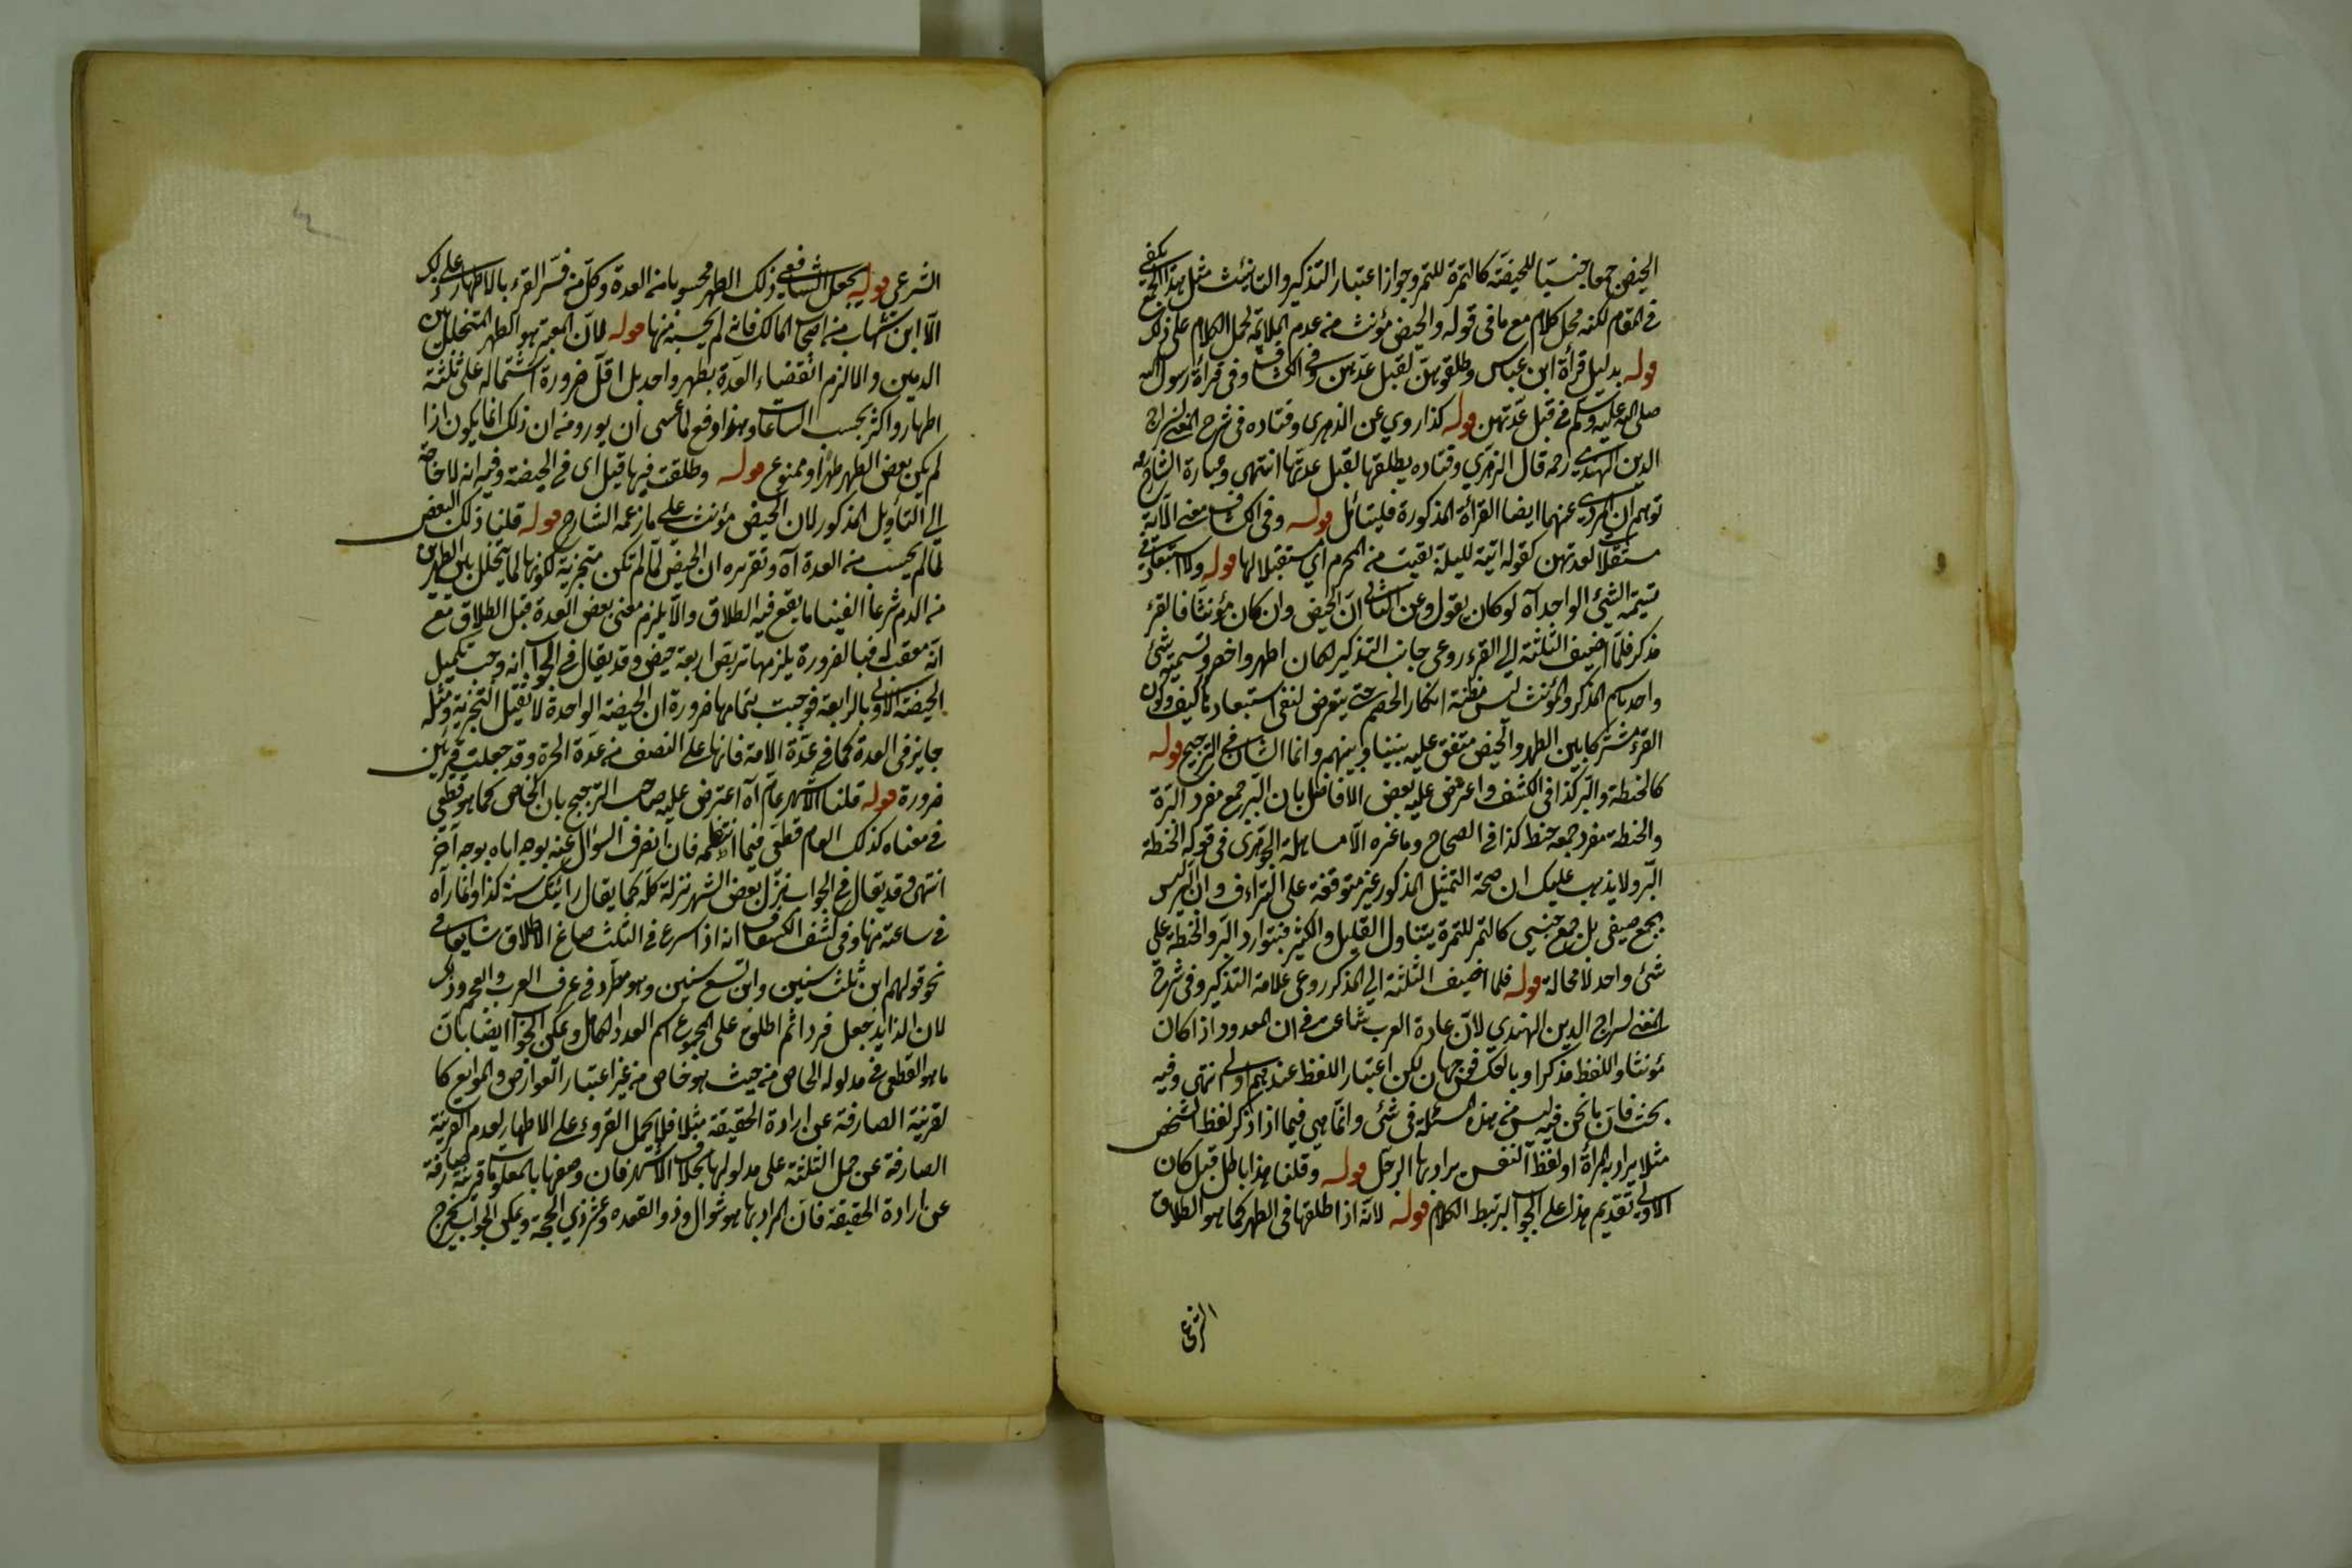 الحيض جمعا جنسيا للحيضة كالتمرة للتمر وجواز اعتبار التذكير والتانيث مثل هذا الجمع يكفي
في المقام لكنه محل كلام مع ما في قوله والحيض مؤنث من عدم الملائمة لحمل الكلام على ذلك
قوله بدليل قرأة ابن عباس وطلقوهن لقبل عدتهن وفي الكشاف وفي قرأة رسول الله
صلى الله عليه وسلم في قبل عدتهن قوله كذا روي عن الزهري وقتاده في شرح المغني لسراج
الدين الهندي رحمه قال الزهري وقتاده يطلقها لقبل عدتها انتهى وعبارة الشارح
توهم ان المروي عنهما ايضا القرأة المذكورة فليتأمل قوله وفي الكشاف معنى الآية
مستقبلا لعدتهن كقوله اتيته لليلة بقيت من المحرم اي مستقبلا لها قوله ولا استبعاد في
تسمية الشئ الواحد آه لو كان يقول وعن الثاني ان الحيض وان كان مؤنثا فالقرء
مذكر فلما اضيف الثلثة الى القرء روعي جانب التذكير لكان اظهر واخصر وتسمية شئ
واحد باسم المذكر والمؤنث ليس مظنة انكار الخصم حتى يتعرض لنفي استبعاده كيف وكون
القرء مشتركا بين الطهر والحيض متفق عليه بيننا وبينهم وانما الشان في الترجيح قوله
كالحنطة والبر كذا في الكشف واعترض عليه بعض الافاضل بان البر جمع مفرد البرة
والحنطة مفرد جمعه حنط كذا في الصحاح وما غره الا مساهلة الجوهري في قوله الحنطة
البر ولا يذهب عليك ان صحة التمثيل المذكور غير متوقفة على الترادف وان البر ليس
بجمع صيغي بل جمع جنسي كالتمر للتمرة يتناول القليل والكثير فيتوارد البر والحنطة على
شئ واحد لا محالة قوله فلما اضيف الثلثة الى المذكر روعي علامة التذكير وفي شرح
المغني لسراج الدين الهندي لان عادة العرب شاعت في ان المعدود اذا كان
مؤنثا واللفظ مذكرا وبالعكس فوجهان لكن اعتبار اللفظ عندهم اولى انتهى وفيه
بحث فان ما نحن فيه ليس من هذه المسئلة في شئ وانما هي فيما اذا ذكر لفظ الشخص
مثلا يراد به المرأة او لفظ النفس يراد بها الرجل قوله وقلنا هذا باطل قبل كان
الاولى تقديم هذا على الجواب ليرتبط الكلام قوله لانه اذا طلقها في الطهر كما هو الطلاق
الشرعي
الشرعي قوله يجعل الشافعي ذلك الطهر محسوبا من العدة وكل من فسر القرء بالاطهار على ذلك
الا ابن شهاب من اصحاب المالك فانه لم يحسبه منها قوله لان المعتبر هو الطهر المتخلل بين
الدمين والا لزم انقضاء العدة بطهر واحد بل اقل ضرورة اشتماله على ثلثة
اطهار واكثر بحسب الساعات وهذا دفع لما عسى ان يورد من ان ذلك انما يكون اذا
لم يكن بعض الطهر طهرا وممنوع قوله وطلقت فيها قيل اى في الحيضة وفيه انه لا حاجة
الى التأويل المذكور لان الحيض مؤنث على ما زعمه الشارح قوله قلنا ذلك البعض
لما لم يحسب من العدة آه وتقريره ان الحيض لما لم تكن متجزية لكونها لما يتخلل بين الطهرين
من الدم شرعا الغينا ما يقع فيه الطلاق والا يلزم مضى بعض العدة قبل الطلاق مع
انه معقب له فبالضرورة يلزمها تربص اربعة حيض وقد يقال في الجواب انه وجب تكميل
الحيضة الاولى بالرابعة فوجبت بتمامها ضرورة ان الحيضة الواحدة لا تقبل التجزية ومثله
جايز في العدة كما في عدة الامة فانها على النصف من عدة الحرة وقد جعلت قرئين
ضرورة قوله قلنا الاشهر عام آه اعترض عليه صاحب الترجيح بان الخاص كما هو قطعي
في معناه كذلك العام قطعي فيما انتظمه فان انصرف السؤال عنه بوجه اباه بوجه آخر
انتهى وقد يقال في الجواب نزل بعض الشهر منزلة كله كما يقال رأيتك سنة كذا وانما رآه
في ساعة منها وفي كشف الكشاف انه اذا اسرع في الثلث صاغ الاطلاق شايعا في
نحو قولهم ابن ثلث سنين وابن تسع سنين وهو مطرد في عرف العرب والعجم وذلك
لان الزايد جعل فردا ثم اطلق على المجموع اسم العدد الكامل ويمكن الجواب ايضا بان
ما هو القطعي في مدلوله الخاص من حيث هو خاص من غير اعتبار العوارض والموانع كا
لقرينة الصارفة عن ارادة الحقيقة مثلا فلا يحمل القروء على الاطهار لعدم القرينة
الصارفة عن حمل الثلثة على مدلولها بخلاف الاشهر فان وصفها بالمعلومات قرينة صارفة
عن ارادة الحقيقة فان المراد بها هو شوال وذو القعده وعشر ذي الحجة ويمكن الجواب بتخرج